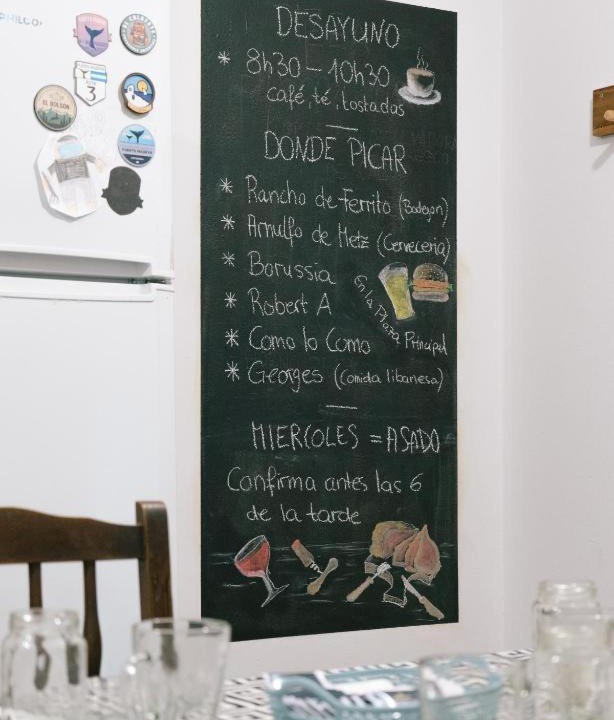 PHILCO
3
EL BOLSON
DESAYUNO
* 8h30 – 10h30
café, té, tostadas
DONDE PICAR
* Rancho de Ferrito (Bodegon)
* Arnulfo de Metz (Cerveceria)
* Borussia
* Robert A
* Como lo Como
En la Plaza Principal
* Georges (Comida libanesa)
MIERCOLES = ASADO
Confirma antes las 6
de la tarde